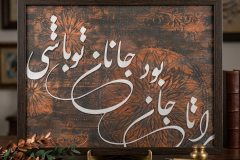 را تا جان بود جانان تو باشی